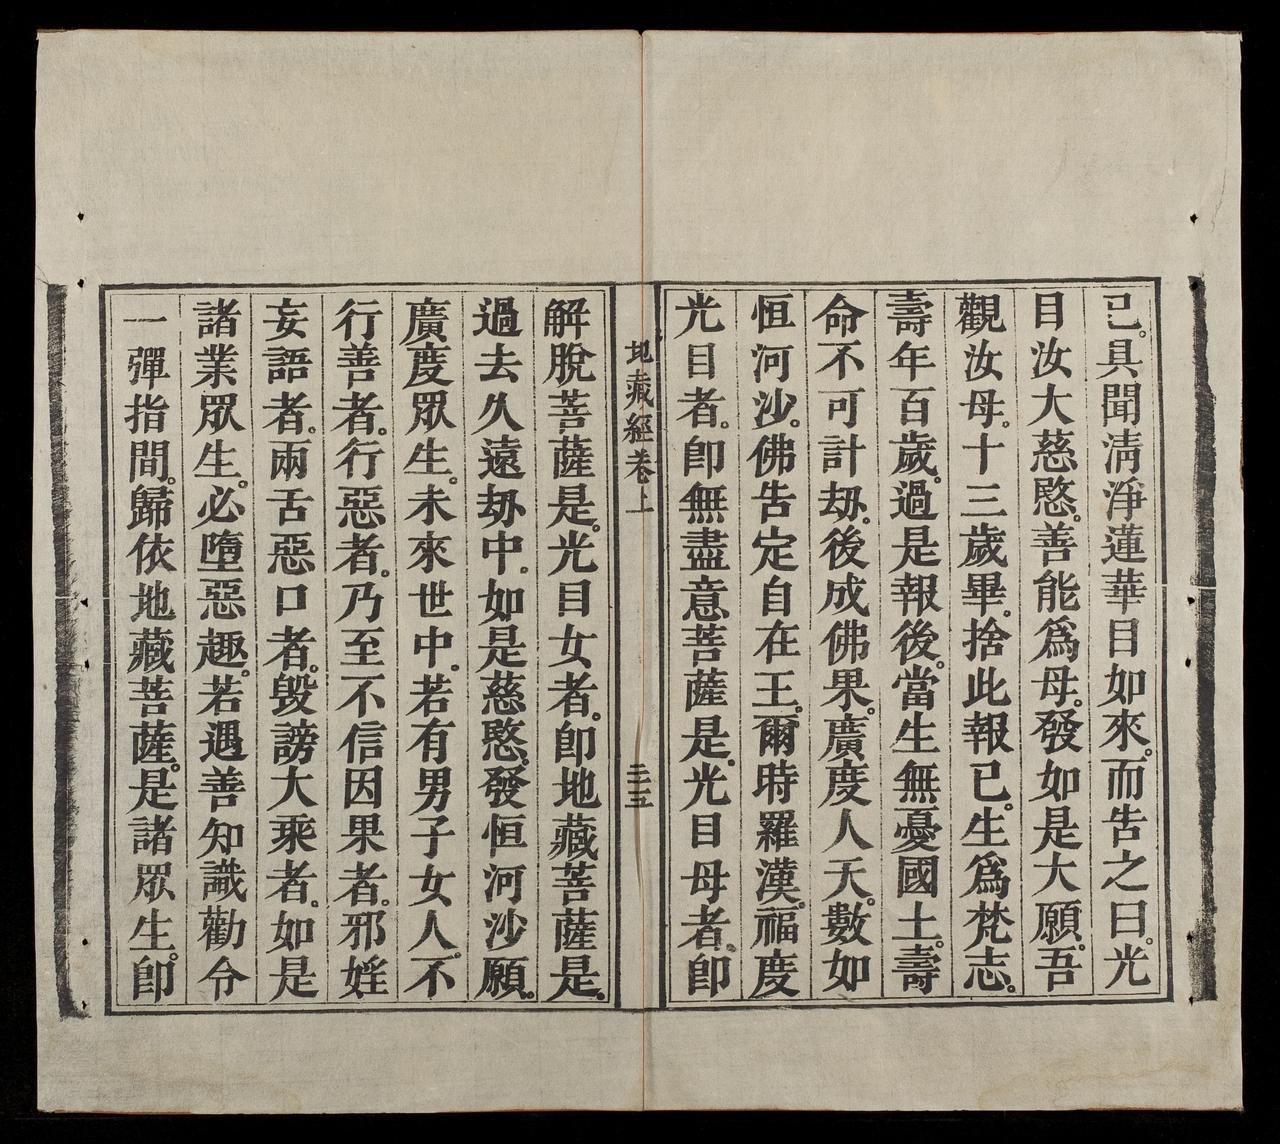 已。具聞清淨蓮華目如來。而告之曰。光
目汝大慈愍。善能爲母。發如是大願。吾
觀汝母。十三歲畢。捨此報已。生爲梵志。
壽年百歲。過是報後。當生無憂國土。壽
命不可計劫。後成佛果。廣度人天。數如
恒河沙。佛告定自在王。爾時羅漢。福度
光目者。卽無盡意菩薩是。光目母者。卽
地藏經卷上 三五
解脫菩薩是。光目女者。卽地藏菩薩是。
過去久遠劫中。如是慈愍。發恒河沙願。
廣度眾生。未來世中。若有男子女人。不
行善者。行惡者。乃至不信因果者。邪婬
妄語者。兩舌惡口者。毀謗大乘者。如是
諸業眾生。必墮惡趣。若遇善知識勸令
一彈指間。歸依地藏菩薩。是諸眾生。卽